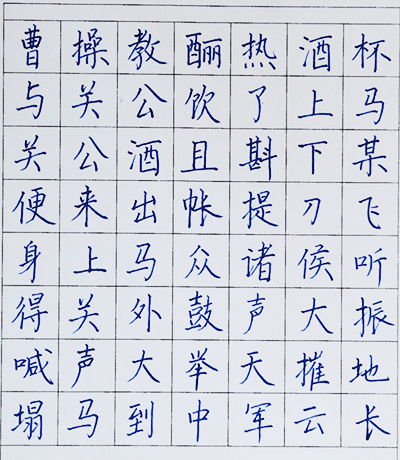 曹操教酾热酒杯
与关公饮了上马
关公酒且斟下某
便来出帐提刀飞
身上马众诸侯听
得关外鼓声大振
喊声大举天摧地
塌马到中军云长